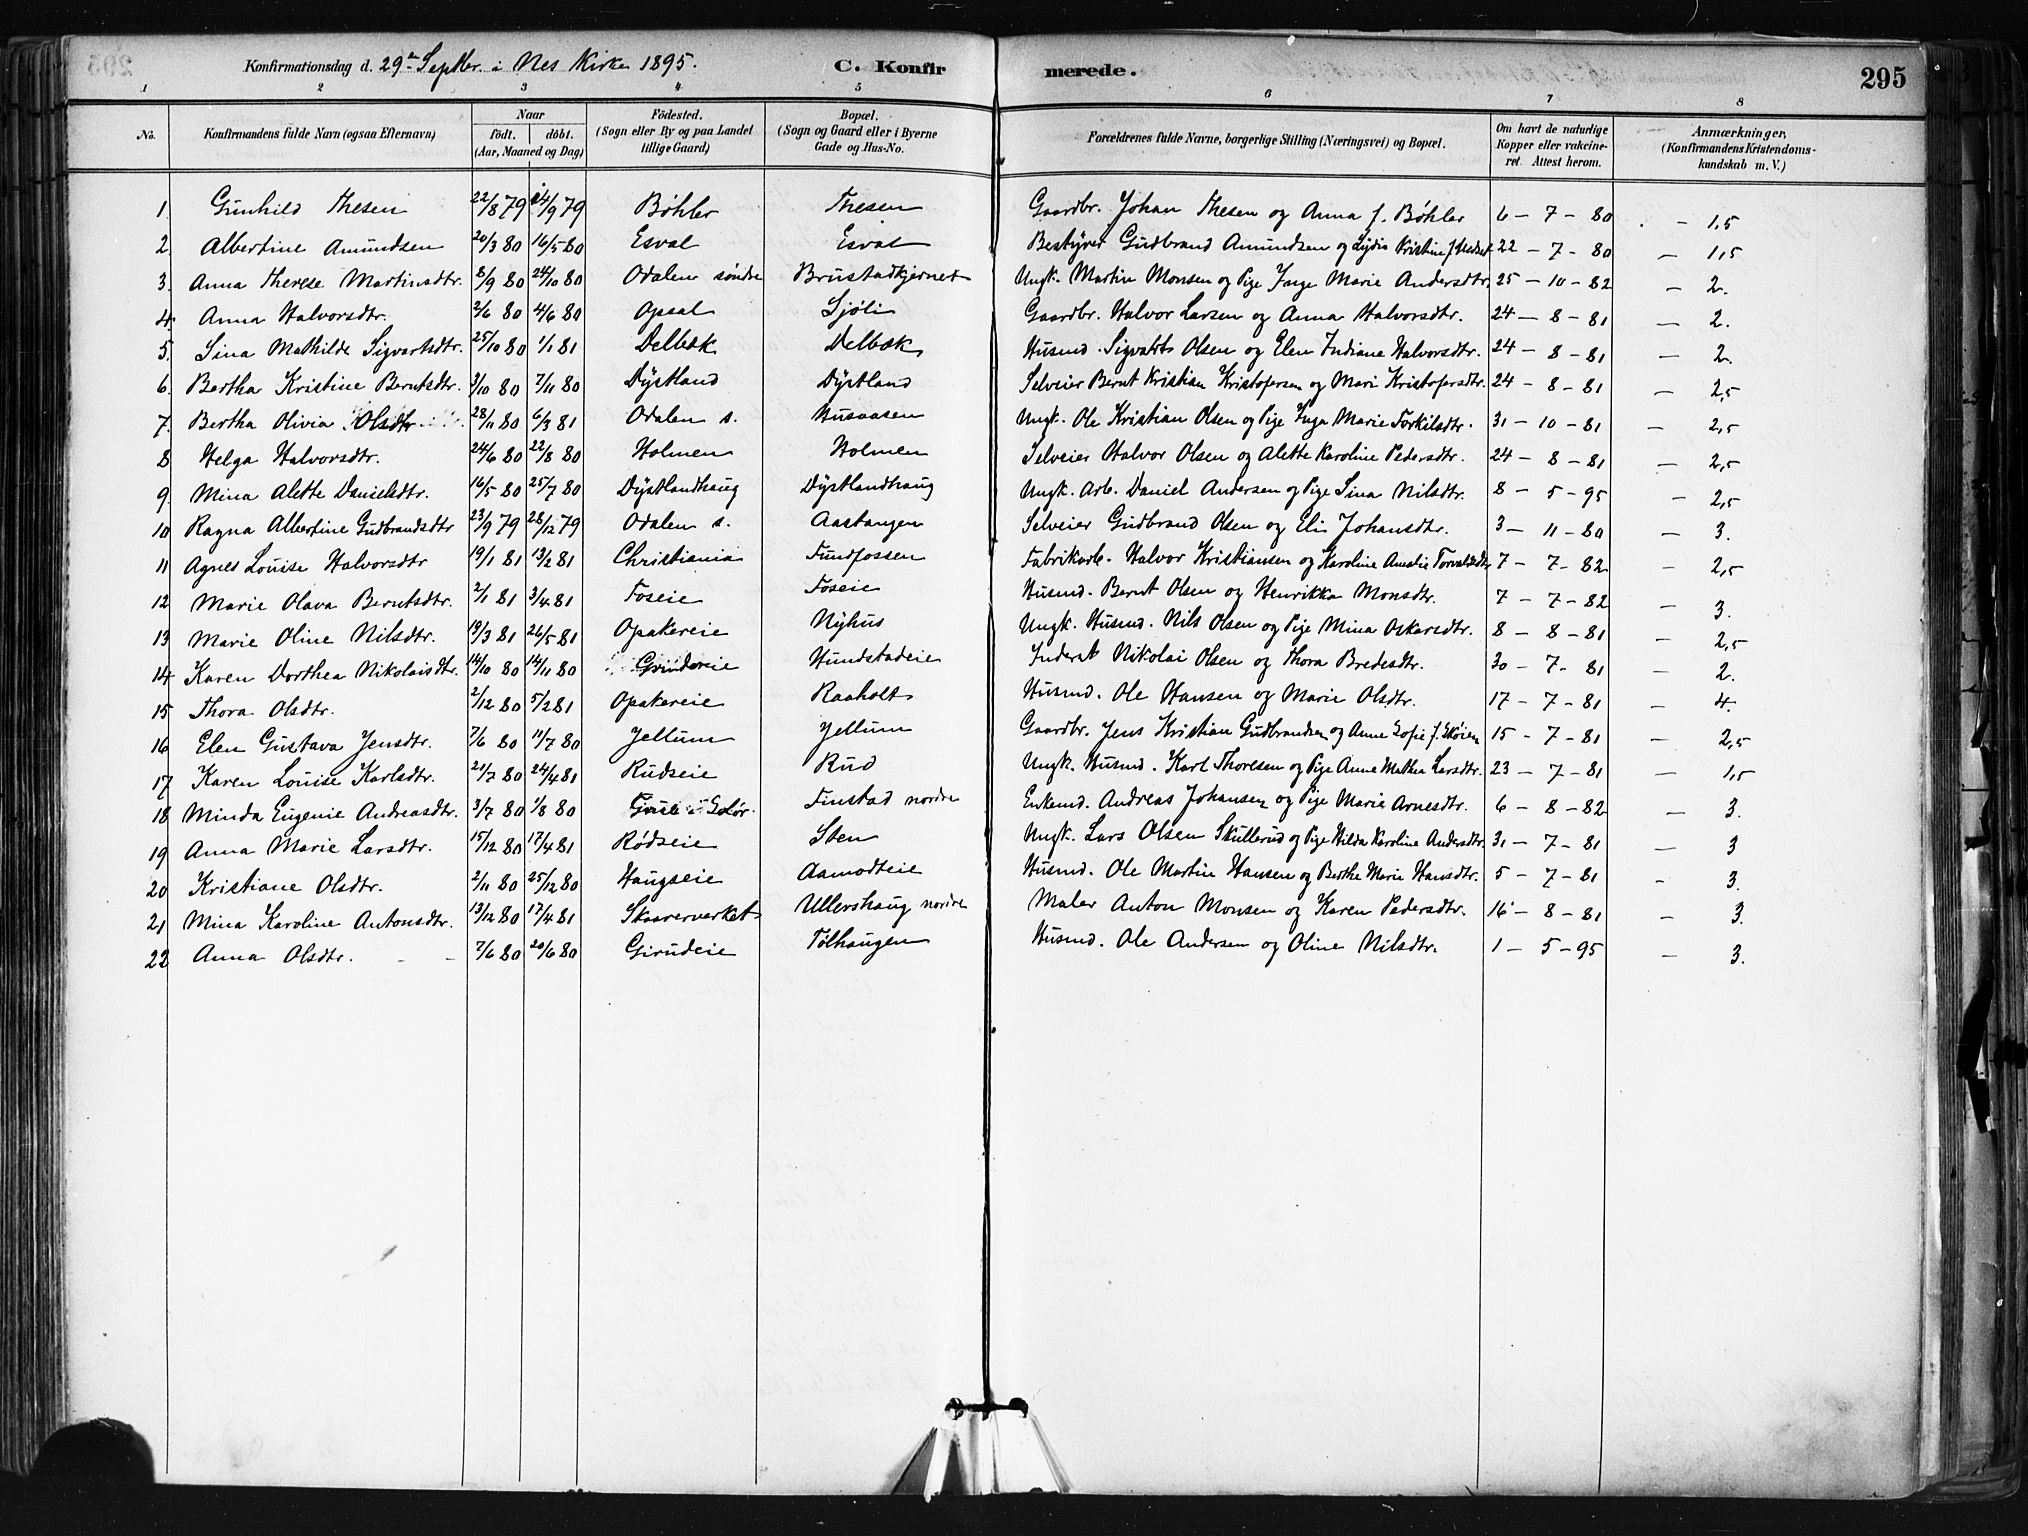 Konfirmationsdag d. 29de Septbr. i Nes Kirke 1895. C. Konfirmerede. 295
1 2 3 4 5 6 7 8
No. Konfirmandens fulde Navn (ogsaa Efternavn) Naar födt. döbt. (Aar, Maaned og Dag) Födested. (Sogn eller By og paa Landet tillige Gaard) Bopæl. (Sogn og Gaard eller i Byerne Gade og Hus-No. Forældrenes fulde Navne, borgerlige Stilling (Næringsvei) og Bopæl. Om havt de naturlige Kopper eller vakcineret. Attest herom. Anmærkninger, (Konfirmandens Kristendomskundskab m. V.)
1. Gunhild Thesen 22/8 79 14/9 79 Bøhler Thesen Gaardbr. Johan Thesen og Anna f. Bøhler 6 - 7 - 80 - 1,5
2. Albertine Amundsen 20/3 80 16/5 80 Esval Esval Bestyrer Gudbrand Amundsen og Lydia Kristine f. 22 - 7 - 80 - 1,5
3. Anna Therese Martinsdtr. 8/9 80 24/10 80 Odalen søndre Brustadtjernet Ungk. Martin Monsen og Pige Inge Marie Andersdtr. 25 - 10 - 82 - 2.
4. Anna Halvorsdtr. 2/6 80 4/6 80 Opsal Sjøli Gaardbr. Halvor Larsen og Anna Halvorsdtr. 24 - 8 - 81 - 2.
5. Sina Mathilde Sigvartsdtr. 25/10 80 1/1 81 Delbæk Delbæk Husmd. Sigvarts Olsen og Elen Indiane Halvorsdtr. 24 - 8 - 81 - 2.
6. Bertha Kristine Berntsdtr. 3/10 80 7/11 80 Dystland Dystland Selveier Bernt Kristian Kristofersen og Mari Kristofersdtr. 24 - 8 - 81 - 2,5
7. Bertha Olivia Olsdtr 28/11 80 6/3 81 Odalen s. Husaasen Ungk. Ole Kristian Olsen og Pige Inga Marie Torkilsdtr. 31 - 10 - 81 - 2,5
8 Helga Halvorsdtr. 24/6 80 22/8 80 Holmen Holmen Selveier Halvor Olsen og Alette Karoline Pedersdtr. 24 - 8 - 81 - 2,5
9 Mina Alette Danielsdtr. 16/5 80 25/7 80 Dystlandhaug Dystlandhaug Ungk. Arb. Daniel Andersen og Pige Sina Nilsdtr. 8 - 5 - 95 - 2,5
10 Ragna Albertine Gudbrandsdtr 23/9 79 28/12 79 Odalen s. Aastangen Selveier Gudbrand Olsen og Eli Johansdtr. 3 - 11 - 80 - 3.
11 Agnes Louise Halvorsdtr 19/1 81 13/2 81 Christiania Fundfossen Fabrikarb. Halvor Kristiansen og Karoline Amalie Torvaldsdtr 7 - 7 - 82 - 2,5
12 Marie Olava Berntsdtr. 2/1 81 3/4 81 Foseie Foseie Husmd. Bernt Olsen og Henrikka Monsdtr. 7 - 7 - 82 - 3.
13 Marie Oline Nilsdtr. 19/3 81 26/5 81 Opakereie Nyhus Ungk. Husmd. Nils Olsen og Pige Mina Oskarsdtr. 8 - 8 - 81 - 2,5
14 Karen Dorthea Nikolaisdtr. 14/10 80 14/11 80 Grindereie Hundstadeie Inderst Nikolai Olsen og Thora Bredesdtr. 30 - 7 - 81 - 2.
15 Thora Olsdtr. 2/12 80 5/2 81 Opakereie Raaholt Husmd. Ole Hansen og Marie Olsdtr. 17 - 7 - 81 - 4.
16 Elen Gustava Jensdtr. 7/6 80 11/7 80 Jellum Jellum Gaardbr. Jens Kristian Gudbrandsen og Anne Sofie f. Skøien 15 - 7 - 81 - 2,5
17 Karen Louise Karlsdtr. 21/7 80 24/4 81 Rudseie Rud Ungk. Husmd. Karl Thoresen og Pige Anna Mathea Larsdtr. 23 - 7 - 81 - 1,5
18 Minda Eugenie Andreasdtr. 3/7 80 1/8 80 Grue i Solør. Finstad nordre Enkemd. Andreas Johansen og Pige Marie Arnesdtr. 6 - 8 - 82 - 3.
19 Anna Marie Larsdtr. 15/12 80 17/4 81 Rødseie Sten Ungk. Lars Olsen Skullerud og Pige Hilda Karoline Andersdtr. 31 - 7 - 81 - 3
20 Kristiane Olsdtr. 2/11 80 25/12 80 Haugseie Aamodteie Husmd. Ole Martin Hansen og Berthe Marie Hansdtr. 5 - 7 - 81 - 3.
21 Mina Karoline Antonsdtr. 13/12 80 17/4 81 Skaarerverket Ullershaug nordre Maler Anton Monsen og Karen Pedersdtr. 16 - 8 - 81 - 3.
22 Anna Olsdtr. - - 7/6 80 20/6 80 Girudeie Tølhaugen Husmd. Ole Andersen og Oline Nilsdtr. 1 - 5 - 95 - 3.